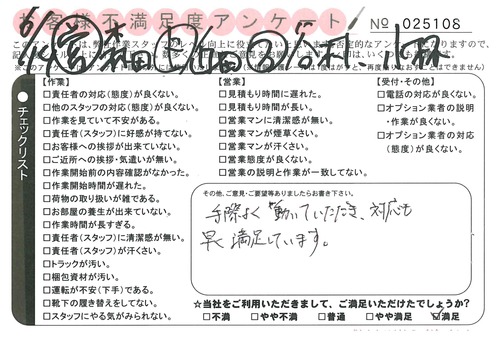 お客様不満足度アンケート
№ 025108
チェックリスト
【作業】
□責任者の対応(態度)が良くない。
□他のスタッフの対応(態度)が良くない。
□作業を見ていて不安がある。
□責任者(スタッフ)に好感が持てない。
□お客様への挨拶が出来ていない。
□ご近所への挨拶・気遣いが無い。
□作業開始前の内容確認がなかった。
□作業開始時間が遅れた。
□荷物の取り扱いが雑である。
□お部屋の養生が出来ていない。
□作業時間が長すぎる。
□責任者(スタッフ)に清潔感が無い。
□責任者(スタッフ)が汗くさい。
□トラックが汚い。
□梱包資材が汚い。
□運転が不安(下手)である。
□靴下の履き替えをしてない。
□スタッフにやる気がみられない。
【営業】
□見積もり時間に遅れた。
□見積もり時間が長い。
□営業マンに清潔感が無い。
□営業マンが煙草くさい。
□営業マンが汗くさい。
□営業態度が良くない。
□営業の説明と作業が一致してない。
【受付・その他】
□電話の対応が良くない。
□オプション業者の説明
・作業が良くない。
□オプション業者の対応
(態度)が良くない。
その他、ご意見・ご要望等ありましたらお書き下さい。
手際よく動いていただき、対応も
早く満足しています。
☆当社をご利用いただきまして、ご満足いただけたでしょうか?
□不満 □やや不満 □普通 □やや満足 ☑満足